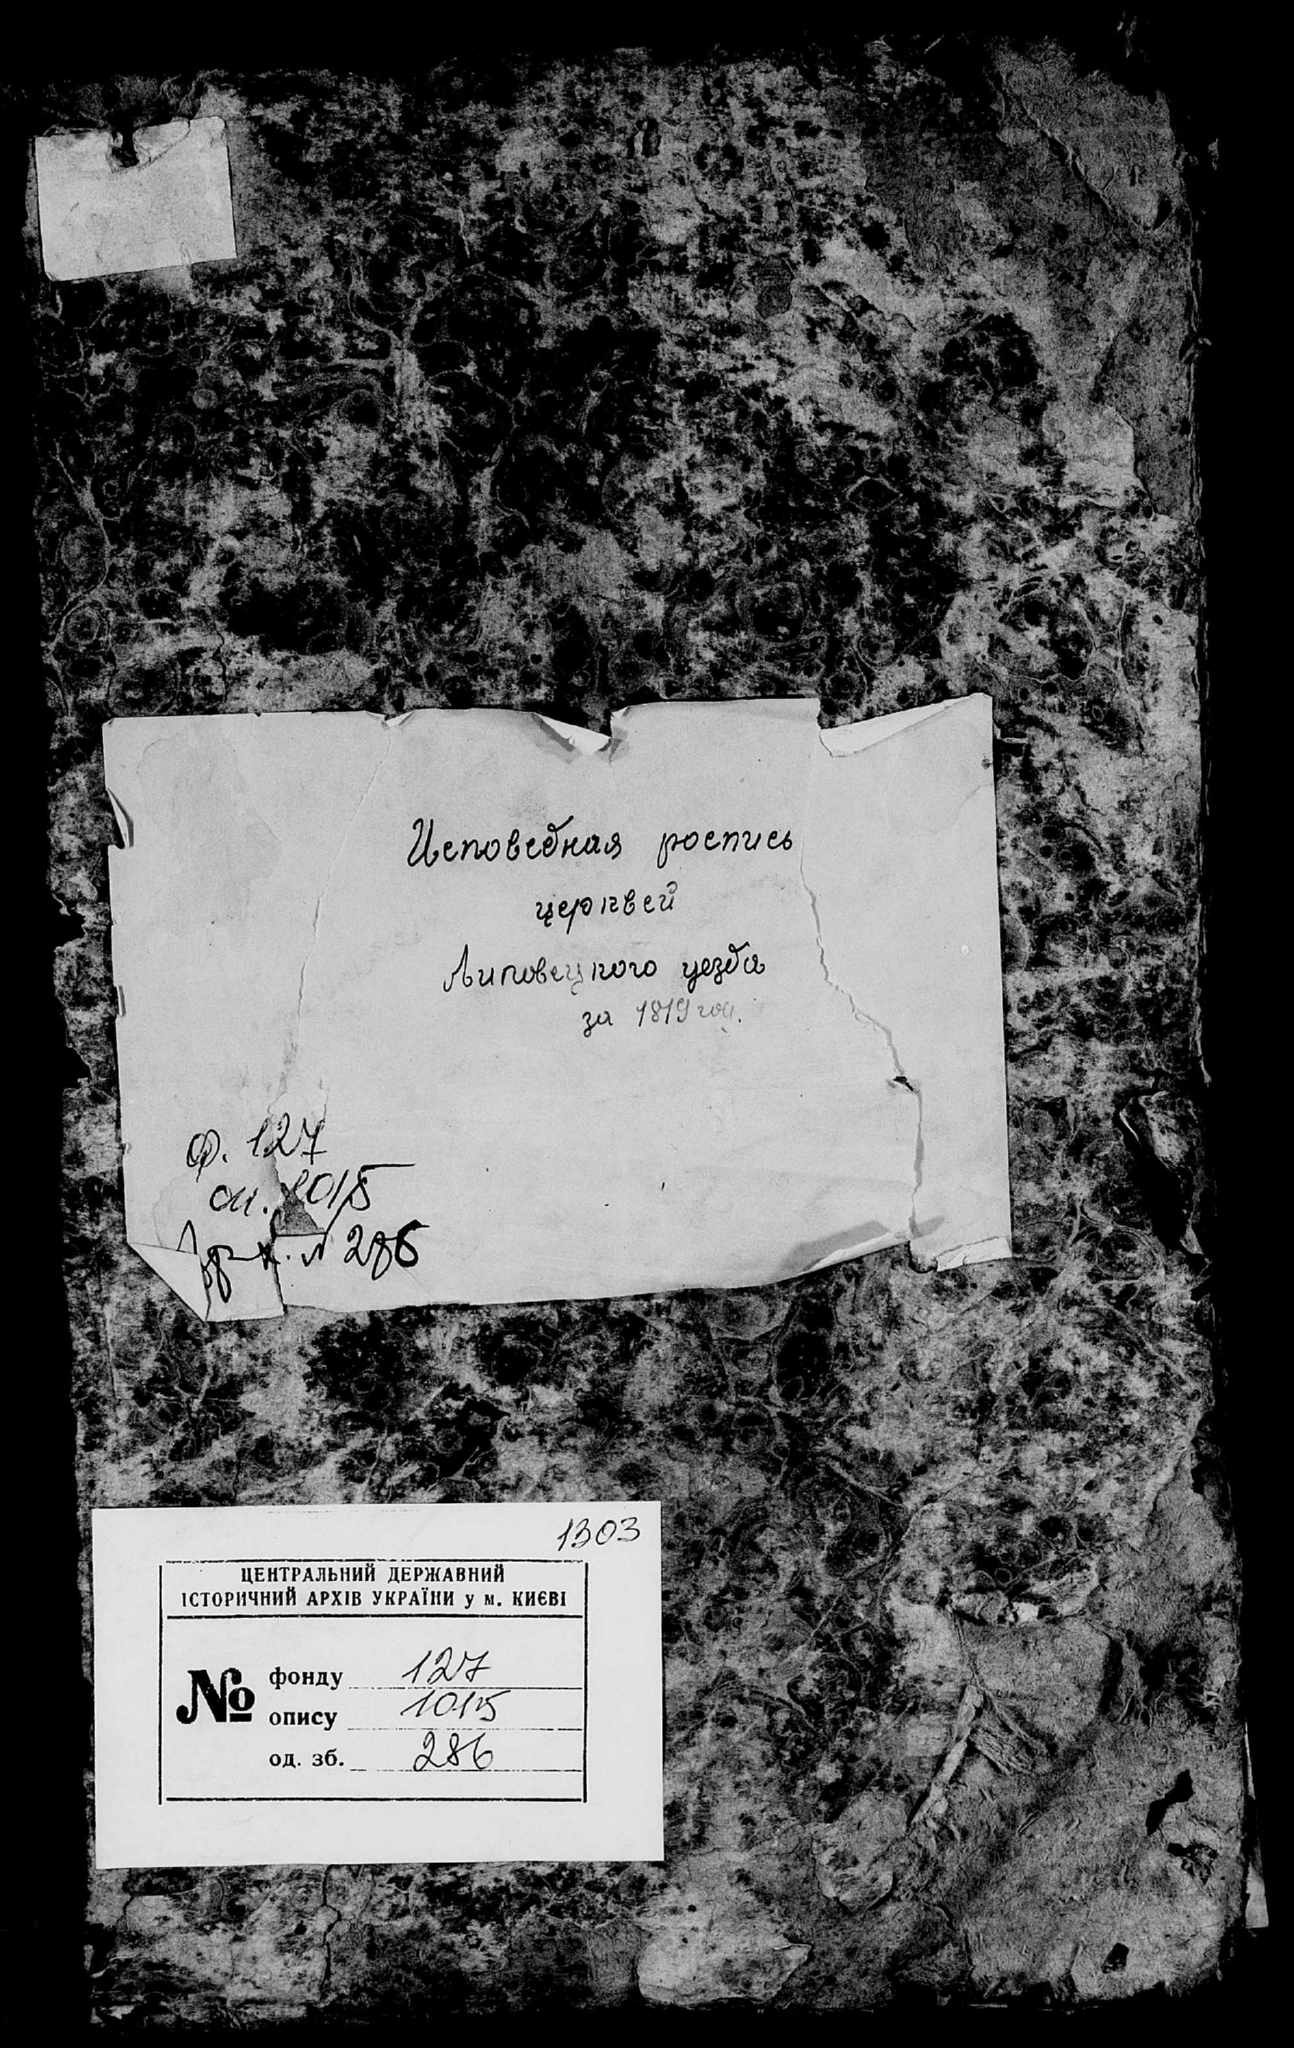 Исповедная роспись
церквей
Липовецкого уезда
за 1819 год.
ф. 127
оп. 1015
№ 286
1303
ЦЕНТРАЛЬНИЙ ДЕРЖАВНИЙ
ІСТОРИЧНИЙ АРХІВ УКРАЇНИ у м. КИЄВІ
№
фонду 127
опису 1015
од. зб. 286